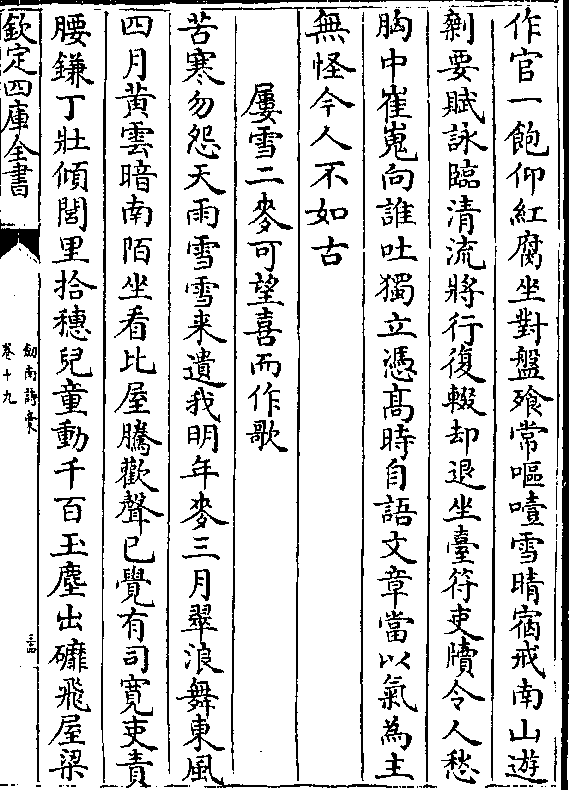 作官一飽仰紅腐坐對盤飱常嘔噎雪晴宿戒南山遊
剩要賦詠臨清流將行復輟却退坐臺符吏牘令人愁
胸中崔嵬向誰吐獨立憑髙時自語文章當以氣為主
無怪今人不如古
屢雪二麥可望喜而作歌
苦寒勿怨天雨雪雪来遺我明年麥三月翠浪舞東風
四月黄雲暗南陌坐看比屋騰歡聲已覺有司寛吏責
腰鎌丁壯傾閭里拾穗兒童動千百玉塵出磨飛屋梁
欽定四庫全書
劍南詩稾
卷十九